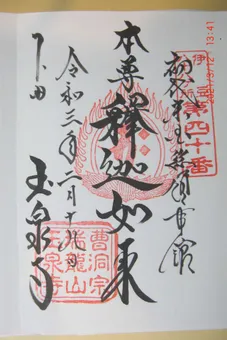 伊豆
第四十番
初代米国領事館
本尊
釋迦如来
令和三年二月十九日
下田
玉泉寺
曹洞宗
瑞龍山
玉泉寺
13:41